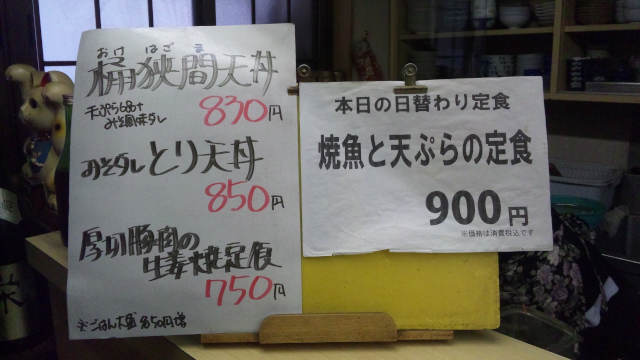 おけ はざま
桶狭間天丼
天ぷら6品+
みそ風味ダレ
830円
みそダレとり天丼
850円
厚切豚肉の
生姜焼定食
750円
※ごはん大盛 50円増
本日の日替わり定食
焼魚と天ぷらの定食
900円
※価格は消費税込です